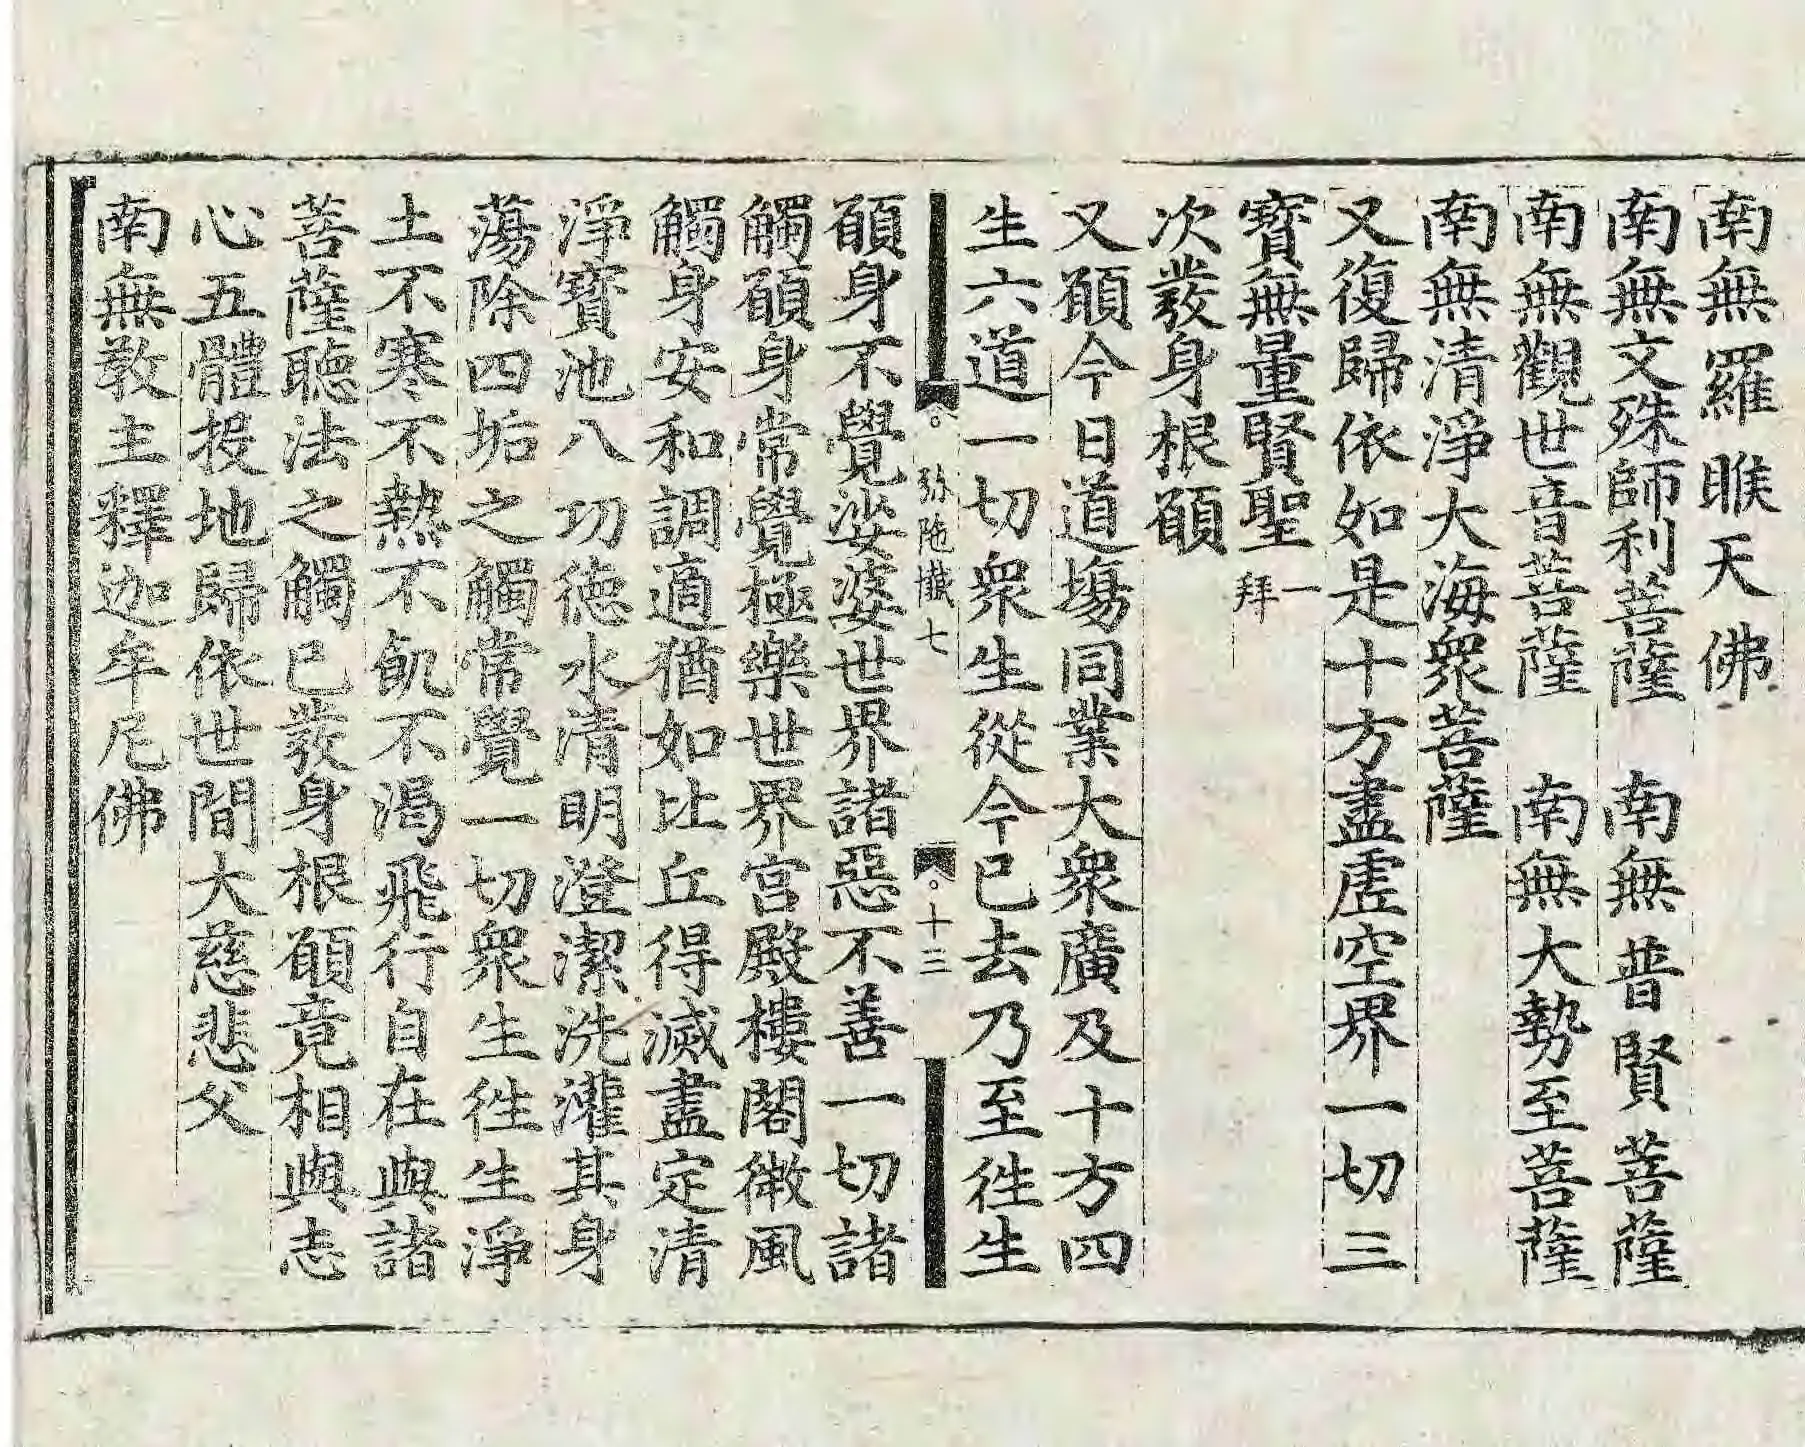 南無羅睺天佛
南無文殊師利菩薩　南無普賢菩薩
南無觀世音菩薩　南無大勢至菩薩
南無清淨大海衆菩薩
又復歸依如是十方盡虛空界一切三
寶無量賢聖一拜
次發身根願
又願今日道塲同業大衆廣及十方四
生六道一切衆生從今已去乃至徃生
弥陁懺七　十三
願身不覺娑婆世界諸惡不善一切諸
觸願身常覺極樂世界宮殿樓閣微風
觸身安和調適猶如比丘得滅盡定清
淨寶池八功德水清明澄潔洗灌其身
蕩除四垢之觸常覺一切衆生徃生淨
土不寒不熱不飢不渴飛行自在與諸
菩薩聽法之觸已發身根願竟相與志
心五體投地歸依世間大慈悲父
南無敎主釋迦牟尼佛